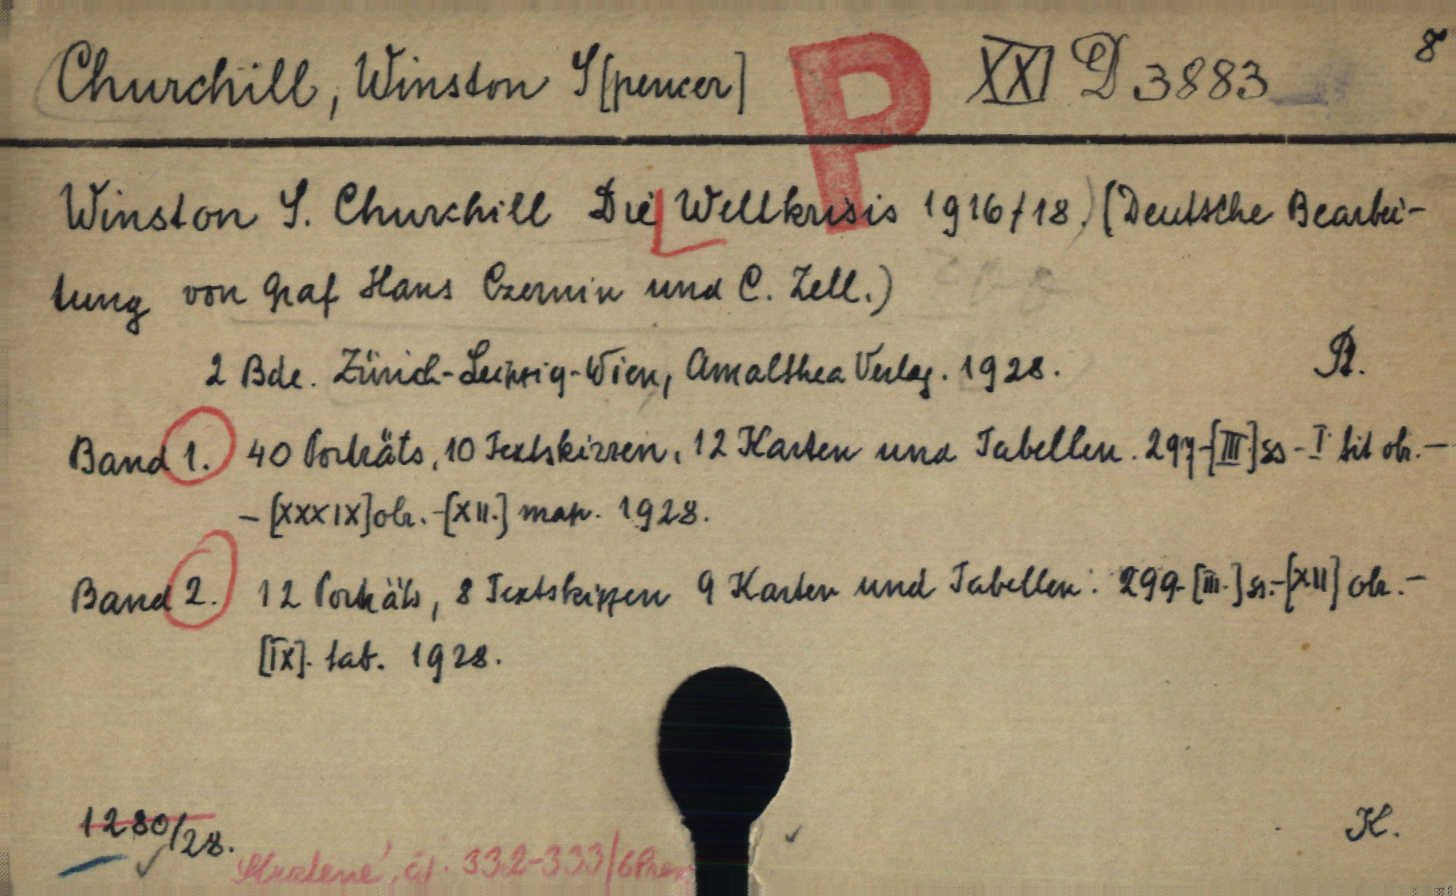 Churchill, Winston S[pencer] P XXI D 3883 8
Winston S. Churchill Die Weltkrisis 1916/18. (Deutsche Bearbei-
tung von Graf Hans Czernin und C. Zell.)
2 Bde. Zürich-Leipzig-Wien, Amalthea Verlag. 1928.
Band 1. 40 Porträts, 10 Textskizzen, 12 Karten und Tabellen. 297-[III] ss - I tit obr. -
- [XXXIX] obr. - [XII.] map. 1928.
Band 2. 12 Porträts, 8 Textskizzen 9 Karten und Tabellen. 299-[III.] ss. - [XII] obr. -
[IX]. tab. 1928.
1280/28. K.
Stratené, čj. 332-333/6